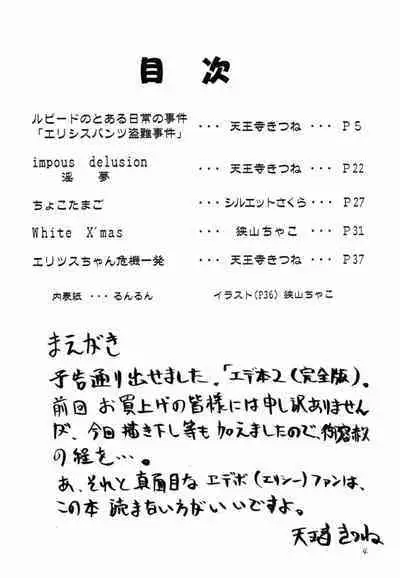 目次
ルピードのとある日常の事件
「エリシスパンツ盗難事件」 ・・・ 天王寺きつね ・・・ P5
impous delusion
淫 夢 ・・・ 天王寺きつね ・・・ P22
ちょこたまご ・・・ シルエットさくら ・・・ P27
White X'mas ・・・ 狭山ちゃこ ・・・ P31
エリツスちゃん危機一発 ・・・ 天王寺きつね ・・・ P37
内表紙 ・・・ るんるん イラスト(P36) 狭山ちゃこ
まえがき
予告通り出せました。「エデ本2(完全版)。
前回お買上げの皆様には申し訳ありません
が、今回描き下し等も加えましたので、御容赦
の程を…。
あ、それと真面目なエデボ(エリシー)ファンは、
この本読まない方がいいですよ。
天王寺きつね
4